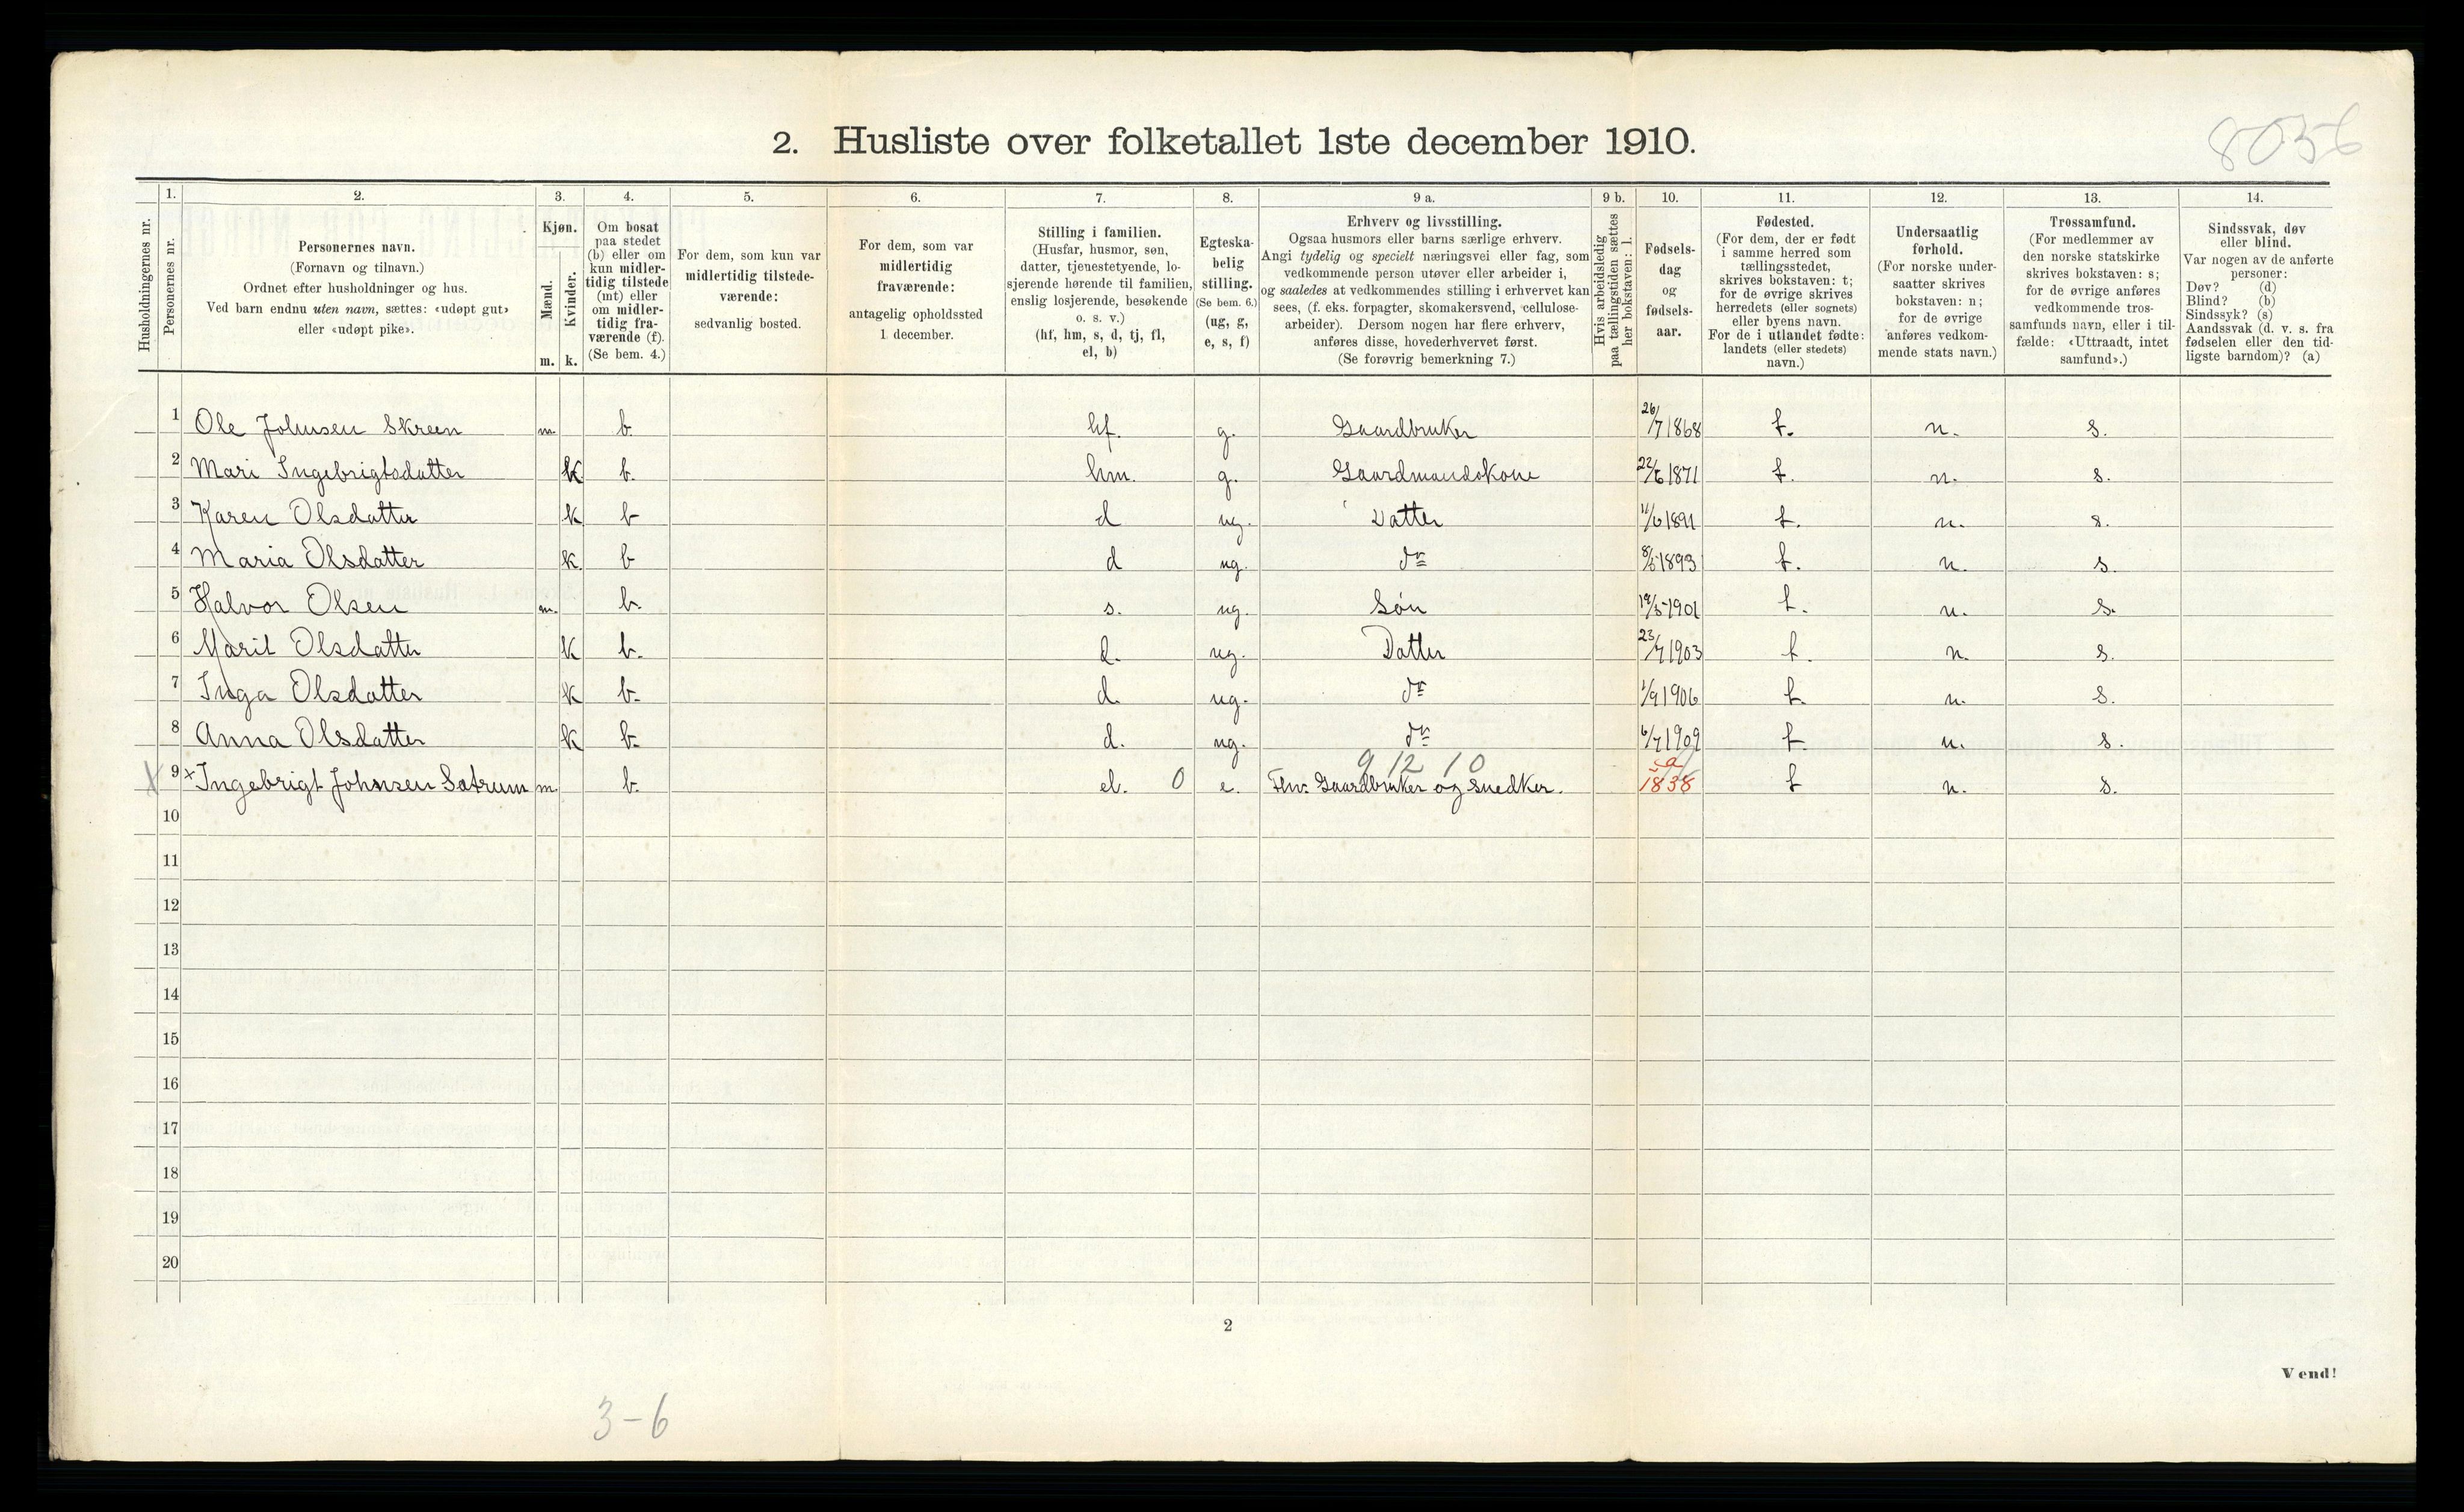 8056
2. Husliste over folketallet 1ste december 1910.
Husholdningernes nr.
1.
Personernes nr.
2.
Personernes navn.
(Fornavn og tilnavn.)
Ordnet efter husholdninger og hus.
Ved barn endnu uten navn, sættes: «udøpt gut»
eller «udøpt pike».
3.
Kjøn.
Mænd.
Kvinder.
m. k.
4.
Om bosat
paa stedet
(b) eller om
kun midler-
tidig tilstede
(mt) eller
om midler-
tidig fra-
værende (f).
(Se bem. 4.)
5.
For dem, som kun var
midlertidig tilstede-
værende:
sedvanlig bosted.
6.
For dem, som var
midlertidig
fraværende:
antagelig opholdssted
1. december.
7.
Stilling i familien.
(Husfar, husmor, søn,
datter, tjenestetyende, lo-
sjerende hørende til familien,
enslig losjerende, besøkende
o. s. v.)
(hf, hm, s, d, tj, fl,
el, b)
8.
Egteska-
belig
stilling.
(Se bem. 6.)
(ug, g,
e, s, f)
9 a.
Erhverv og livsstilling.
Ogsaa husmors eller barns særlige erhverv.
Angi tydelig og specielt næringsvei eller fag, som
vedkommende person utøver eller arbeider i,
og saaledes at vedkommendes stilling i erhvervet kan
sees, (f. eks. forpagter, skomakersvend, cellulose-
arbeider). Dersom nogen har flere erhverv,
anføres disse, hovederhvervet først.
(Se forøvrig bemerkning 7.)
9 b.
Hvis arbeidsledig
paa tællingstiden sættes
her bokstaven: l.
10.
Fødsels-
dag
og
fødsels-
aar.
11.
Fødested.
(For dem, der er født
i samme herred som
tællingsstedet,
skrives bokstaven: t;
for de øvrige skrives
herredets (eller sognets)
eller byens navn.
For de i utlandet fødte:
landets (eller stedets)
navn.)
12.
Undersaatlig
forhold.
(For norske under-
saatter skrives
bokstaven: n;
for de øvrige
anføres vedkom-
mende stats navn.)
13.
Trossamfund.
(For medlemmer av
den norske statskirke
skrives bokstaven: s;
for de øvrige anføres
vedkommende tros-
samfunds navn, eller i til-
fælde: «Uttraadt, intet
samfund».)
14.
Sindssvak, døv
eller blind.
Var nogen av de anførte
personer:
Døv? (d)
Blind? (b)
Sindssyk? (s)
Aandssvak (d. v. s. fra
fødselen eller den tid-
ligste barndom)? (a)
1 Ole Johnsen Skreen m. b. hf. g. Gaardbruker 26/7 1868 t. n. s.
2 Mari Ingebrigtsdatter k b. hm. g. Gaardmandskone 22/6 1871 t. n. s.
3 Karen Olsdatter k b d ug. Datter 11/6 1891 t. n. s.
4 Maria Olsdatter k. b d ug. do 8/5 1893 t. n. s.
5 Halvor Olsen m. b. s. ug. Søn 19/5-1901 t. n. s.
6 Marit Olsdatter k b. d. ug. Datter 23/7 1903 t. n. s.
7 Inga Olsdatter k b. d. ug. do 1/9 1906 t. n. s.
8 Anna Olsdatter k b. d. ug. do 6/7 1909 t. n. s.
9 12 10
X 9 × Ingebrigt Johnsen Satrum m. b. el. 0 e. Fhv. Gaardbruker og Snedker. ca 1838 t n. s.
10
11
12
13
14
15
16
17
18
19
20
2
Vend!
3-6